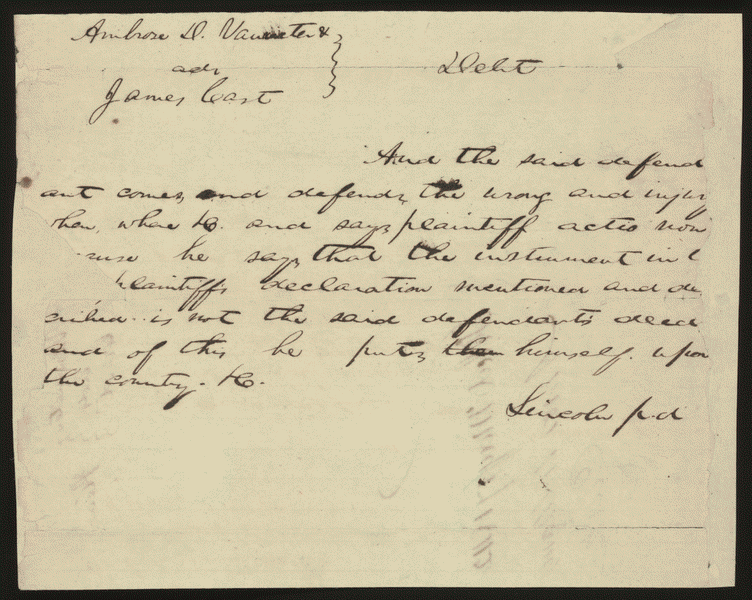 Ambrose D. Vanmeter &
ads
James Cast
Debt
And the said defend
ant comes, and defends, the wrong and injury
when, where &c. and says plaintiff actio non
cause he says that the instrument in
plaintiffs declaration mentioned and de
scribed is not the said defendants deed
and of this he puts, himself upon
the country. &c.
Lincoln p.d